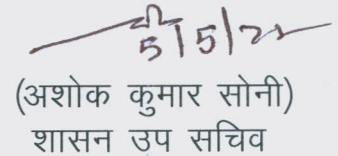 5/5/22
(अशोक कुमार सोनी)
शासन उप सचिव